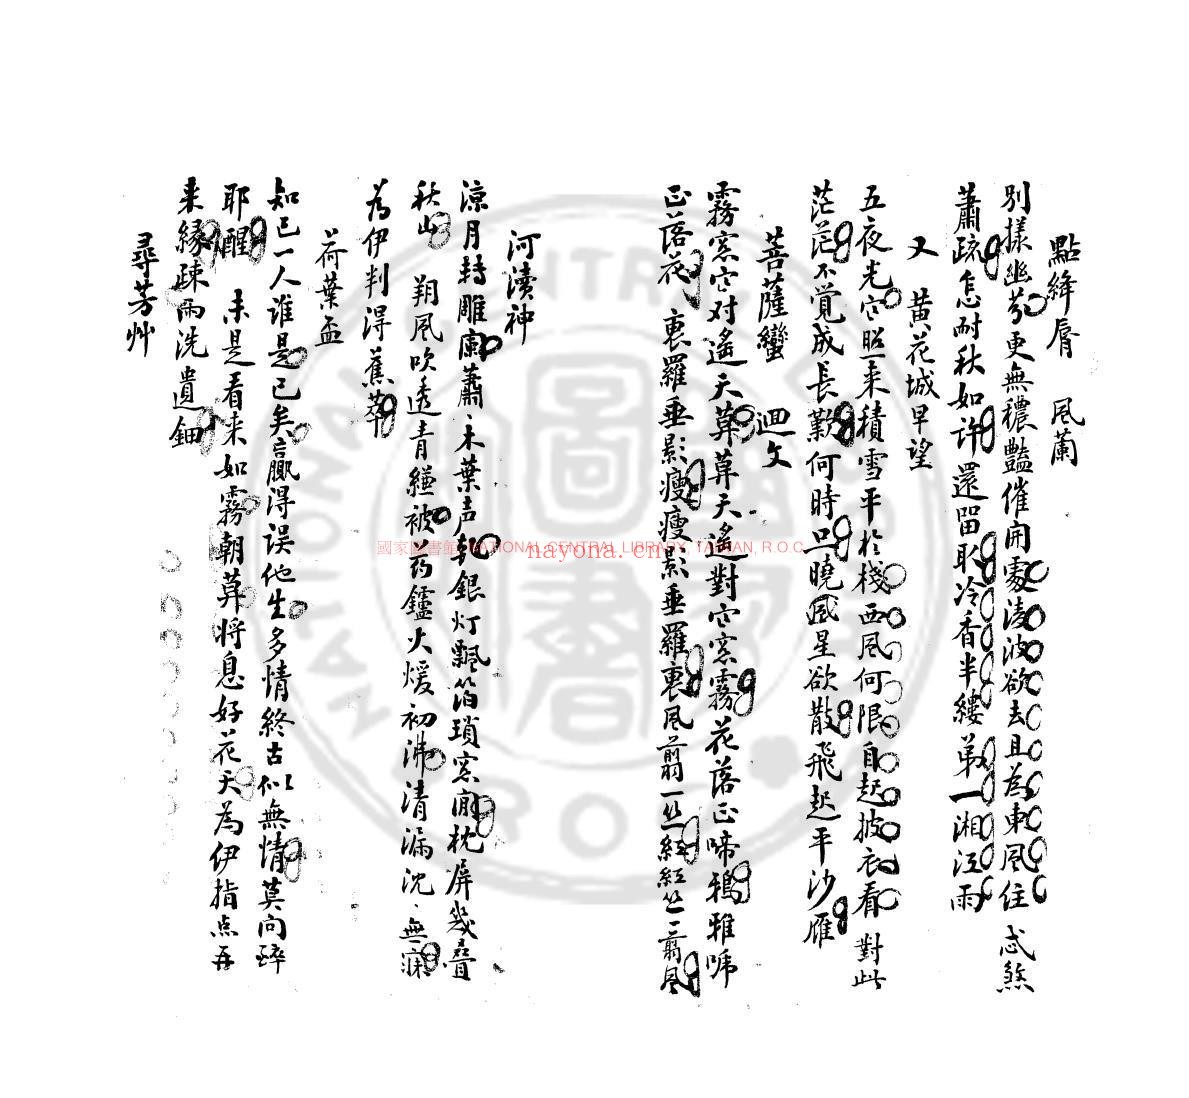 點絳脣　風蘭
別樣幽芬更無穠豔催開處淩波欲去且為東風住　忒煞
蕭疏怎耐秋如許還留取冷香半縷第一湘江雨
又　黃花城早望
五夜光寒照來積雪平於棧西風何限自起披衣看　對此
茫茫不覺成長歎何時旦曉星欲散飛起平沙雁
菩薩蠻　迴文
霧窓寒对遙天草草天遙對寒窓霧花落正啼鴉鴉啼
正落花　裏羅垂影瘦瘦影垂羅裏風翦一絲紅紅絲一翦風
河瀆神
涼月轉雕闌蕭ゝ木葉声乾銀灯飄箔瑣窓閒枕屏幾疊
秋山　朔風吹透青縑被药鑪火煖初沸清漏沈ゝ無寐
為伊判得蕉萃
荷葉盃
知己一人谁是已矣贏得误他生多情終古似無情莫问醉
耶醒　未是看来如霧朝暮将息好花天為伊指点再
来緣疎雨洗遺鈿
尋芳艸
國家圖書館 NATIONAL CENTRAL LIBRARY, TAIWAN, R.O.C.
nayona.cn